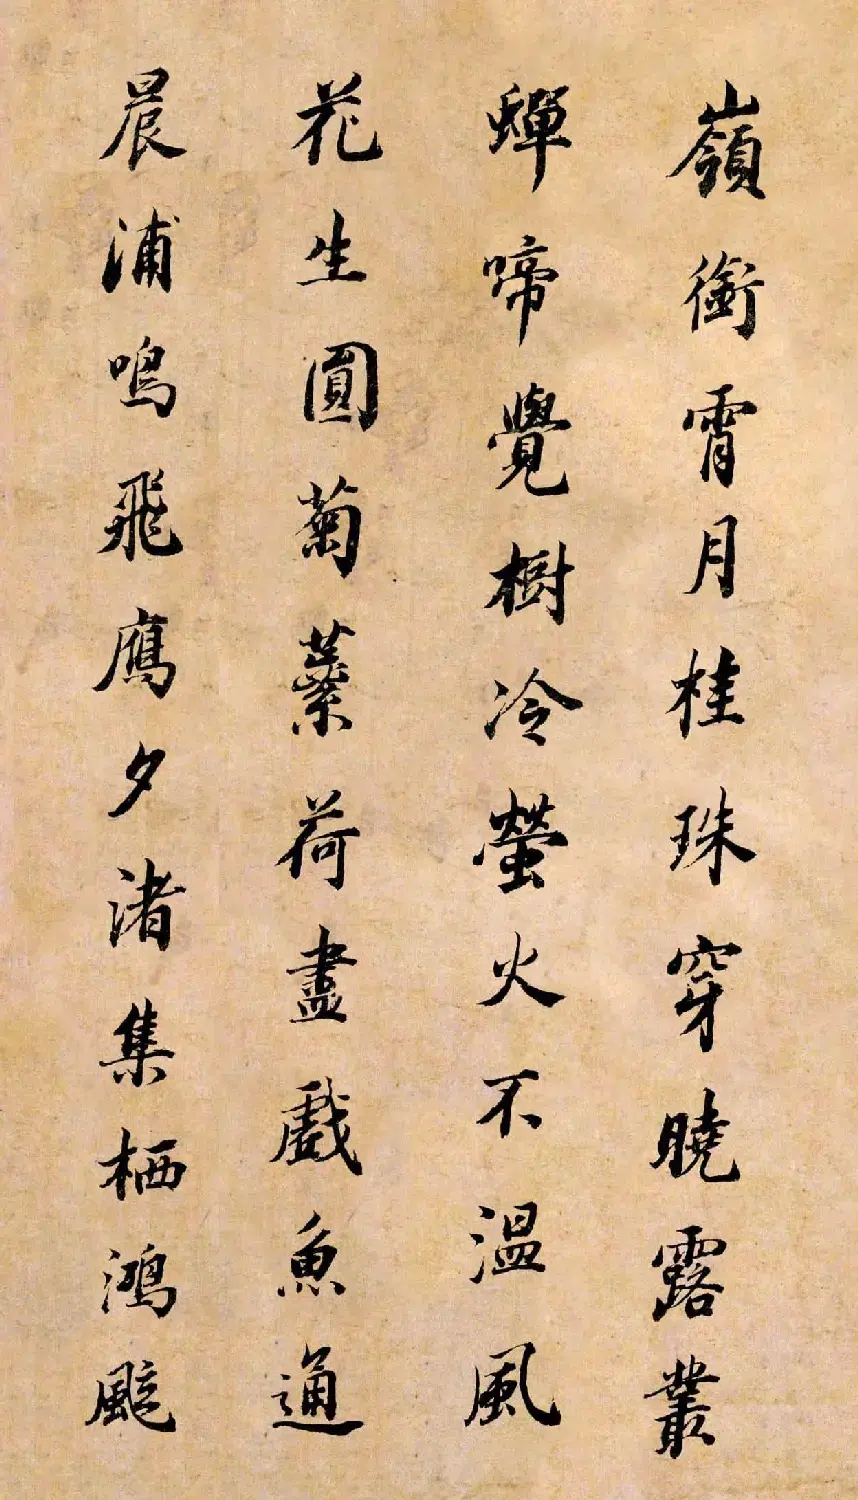 嶺銜霄月桂珠穿曉露叢
蟬啼覺樹冷螢火不溫風
花生圓菊蘂荷盡戲魚通
晨浦鳴飛鴈夕渚集栖鴻
飈